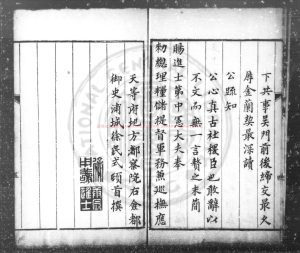 下共事吳門前後締交最久
辱金蘭契最深讀
公疏知
公心真古社稷臣也敢辭以
不文而無一言贊之末簡
賜進士第中憲大夫奉
勑總理糧儲提督軍務兼巡撫應
天等府地方都察院右僉都
御史浦城徐民式頓首撰